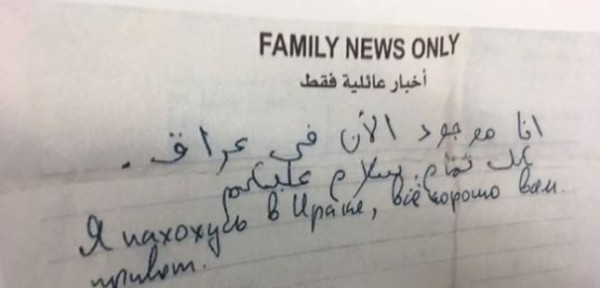 FAMILY NEWS ONLY
أخبار عائلية فقط
انا موجود الأن في عراق.
كل تمام. سلام عليكم
Я нахохусь в Ираке, всё хорошо вам.
привет.